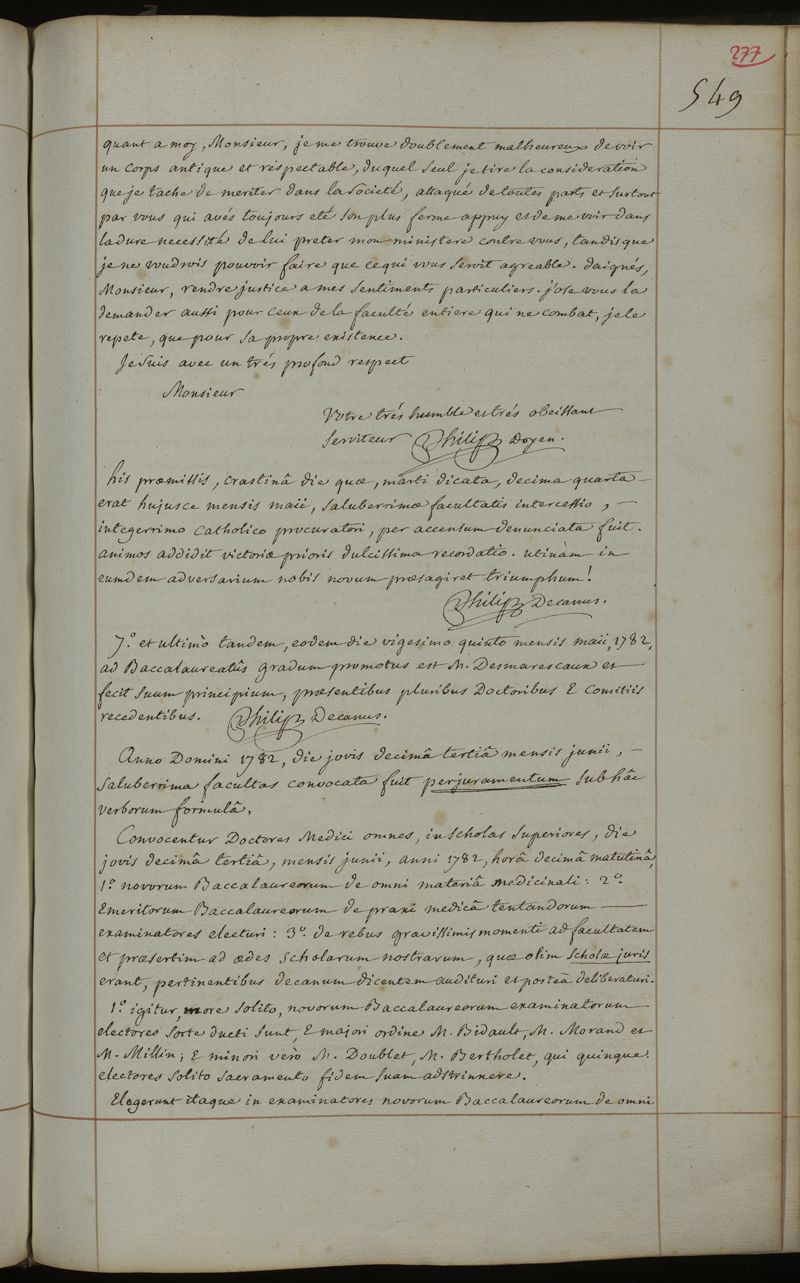 277
549
quant a moy, Monsieur, je me trouve doublement malheureux de voir
un corps antique et respectable, duquel seul je tire la consideration
que je tache de meriter dans la societé, attaqué de toutes parts et surtout
par vous qui avés toujours eté son plus ferme appuy et de me voir dans
la dure necessité de lui preter mon ministere contre vous, tandis que
je ne voudrois pouvoir faire que ce qui vous seroit agreable. daignés,
Monsieur, rendre justice a mes sentiments particuliers. j'ose vous la
demander aussi pour ceux de la faculté entiere qui ne combat, je le
repete, que pour sa propre existence.
Je suis avec un trés profond respect
Monsieur
Votre trés humble et trés obeissant
Serviteur Philip Doyen.
his præmissis, crastinâ die quæ, marti dicata, decima quarta
erat hujusce mensis maii, saluberrimæ facultatis intercessio, -
integerrimo Catholico procuratori, per accensum denunciata fuit.
animos addidit victoriæ prioris dulcissima recordatio. utinàm in
eumdem adversarium nobis novum præsagiret triumphum!
Philip Decanus.
7.º et ultimò tandem, eodem die vigesimo quinto mensis maii, 1782,
ad Baccalaureatûs gradum promotus est M. Desmarescaux et
fecit suum principium, præsentibus pluribus Doctoribus è Comitiis
recedentibus. Philip Decanus.
Anno Domini 1782, die jovis decimâ tertiâ mensis junii, -
saluberrima facultas convocata fuit per juramentum sub hâc
verborum formulâ.
Convocentur Doctores Medici omnes, in Scholas Superiores, die
jovis decimâ tertiâ, mensis junii, anni 1782, horâ decimâ matutinâ,
1.º novorum Baccalaureorum de omni materiâ medicinali: 2.º
Emeritorum Baccalaureorum de praxi medicâ tentandorum
examinatores electuri: 3.º de rebus gravissimis momenti ad facultatem
et præsertim ad ædes Scholarum nostrarum, quæ olim Scholæ juris
erant, pertinentibus decanum dicentem audituri et posteà deliberaturi.
1.º igitur, more solito, novorum Baccalaureorum examinatorum
electores sorte ducti sunt, è majori ordine M. Bidault, M. Morand et
M. Millin; è minori verò M. Doublet, M. Bertholet, qui quinque
electores solito sacramento fidem suam adstrinxere.
Elegerunt itaque in examinatores novorum Baccalaureorum de omni